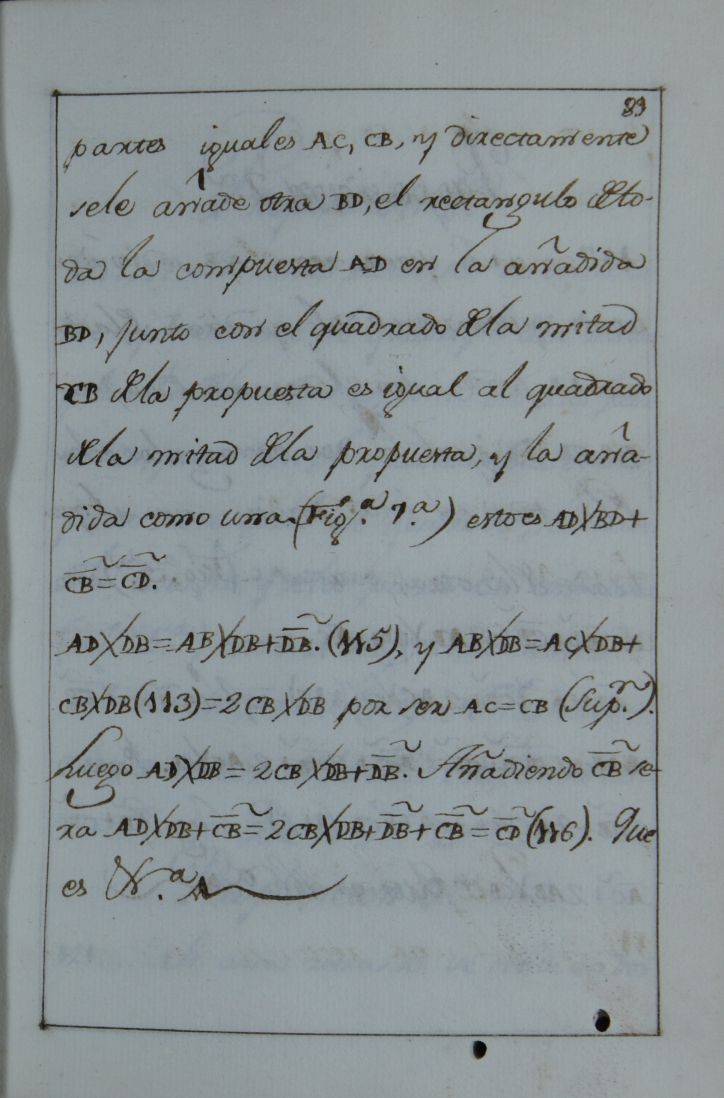 89
partes iguales AC, CB, y directamente
sele añade otra BD, el rectangulo de to-
da la compuesta AD en la añadida
BD, junto con el quadrado de la mitad
CB de la propuesta es igual al quadrado
de la mitad de la propuesta, y la aña-
dida como una. (Fig.ª 7.ª) esto es AD╳BD+
C̅B̅͠ = C̅D̅͠.
AD╳DB = AB╳DB + D̅B̅͠. (115), y AB╳DB = AC╳DB +
CB╳DB (113) = 2 CB╳DB por ser AC = CB (Sup.ⁿ).
Luego AD╳DB = 2CB╳DB + D̅B̅͠. Añadiendo C̅B̅͠ se-
ra AD╳DB + C̅B̅͠ = 2CB╳DB + D̅B̅͠ + C̅B̅͠ = C̅D̅͠ (116). Que
es